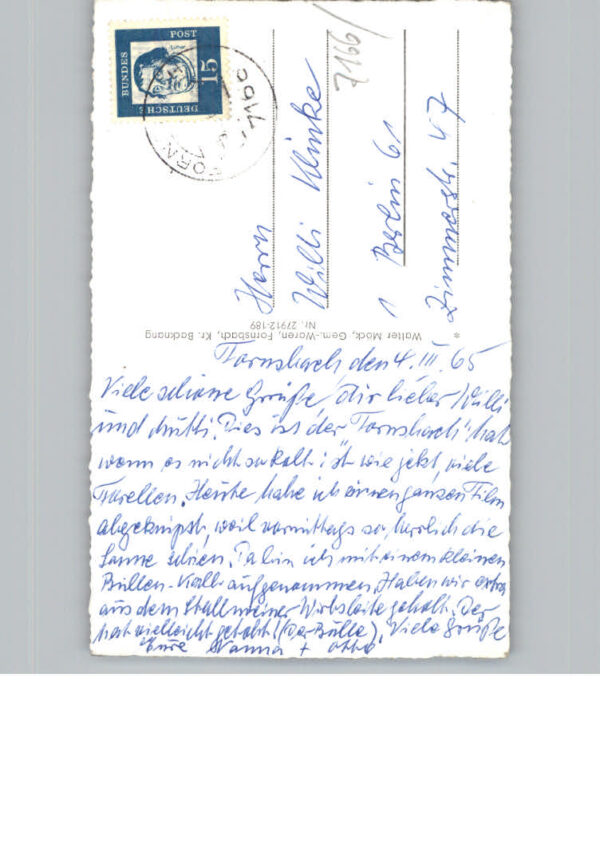 DEUTSCHE
BUNDES
POST
15
7166
Herrn
Willi Klinke
1 Berlin 61
Zimmerstr. 47
* Walter Mock, Gem.-Waren, Fornsbach, Kr. Backnang
Nr. 27912-189
Fornsbach, den 4. III. 65
Viele schöne Grüße, dir lieber Willi
und Mutti. Dies ist der "Fornsbach", hat
wenn es nicht so kalt ist wie jetzt, viele
Forellen. Heute habe ich einen ganzen Film
abgeknipst, weil vormittags so herrlich die
Sonne schien. Da bin ich mit einem kleinen
Bullen-Kalb aufgenommen. Haben wir extra
aus dem Stall meiner Wirtsleute geholt. Der
hat vielleicht getobt! (der Bulle). Viele Grüße
Eure Nanna + Otto